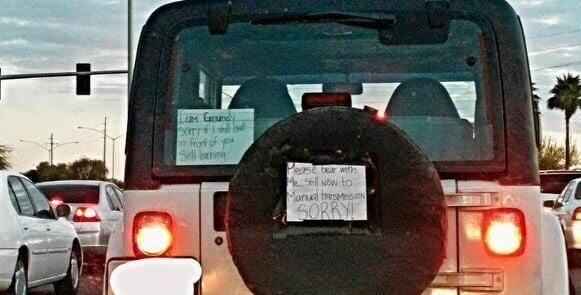 I am Genuinely
sorry if I stall out
in front of you
Still learning
Please bear with
Me Still new to
Manual transmission
SORRY!